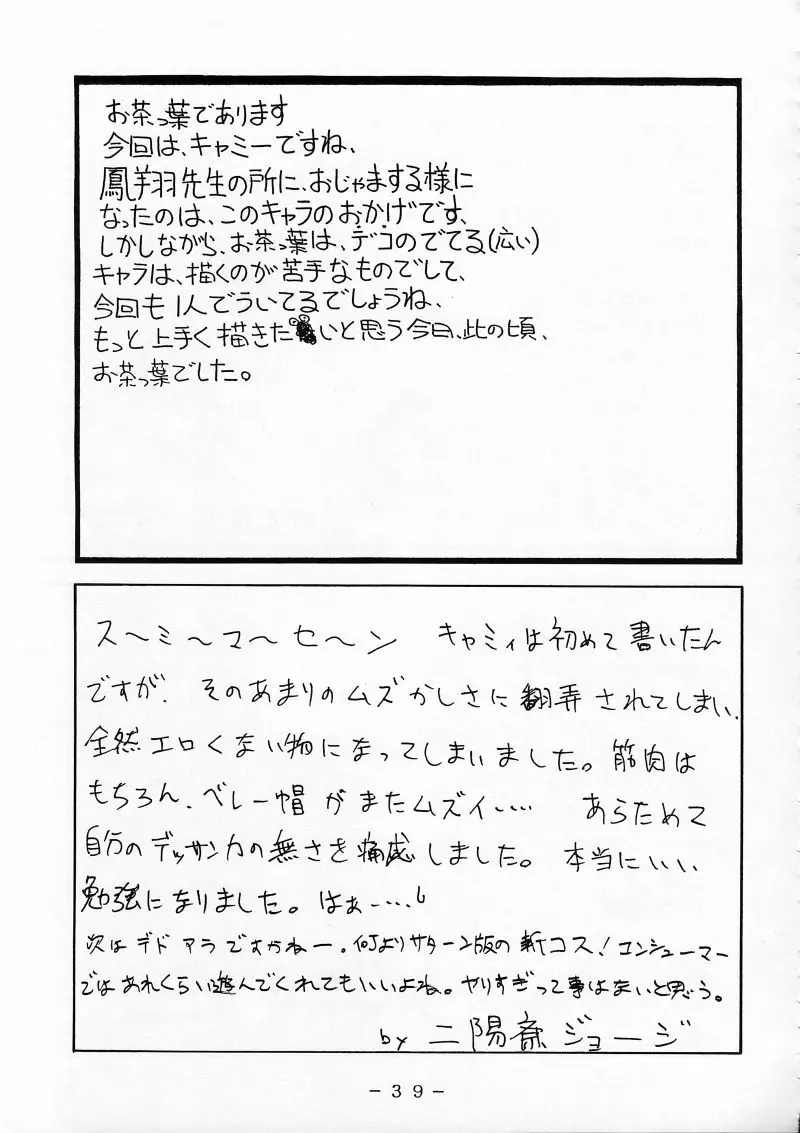 お茶っ葉であります
今回は、キャミーですね、
鳳翔羽先生の所に、おじゃまする様に
なったのは、このキャラのおかげです、
しかしながら、お茶っ葉は、デコのでてる(広い)
キャラは、描くのが苦手なものでして、
今回も1人でういてるでしょうね、
もっと上手く描きたいと思う今日、此の頃、
お茶っ葉でした。
ス〜ミ〜マ〜セ〜ン キャミィは初めて書いたん
ですが、そのあまりのムズかしさに翻弄されてしまい、
全然エロくない物になってしまいました。筋肉は
もちろん、ベレー帽がまたムズイ‥‥ あらためて
自分のデッサン力の無さを痛感しました。本当にいい
勉強になりました。はぁ‥‥。
次はデドアラですかねー。何よりサターン版の新コス!コンシューマー
ではあれくらい遊んでくれてもいいよね。ヤりすぎって事はないと思う。
by 二陽斎ジョージ
-39-